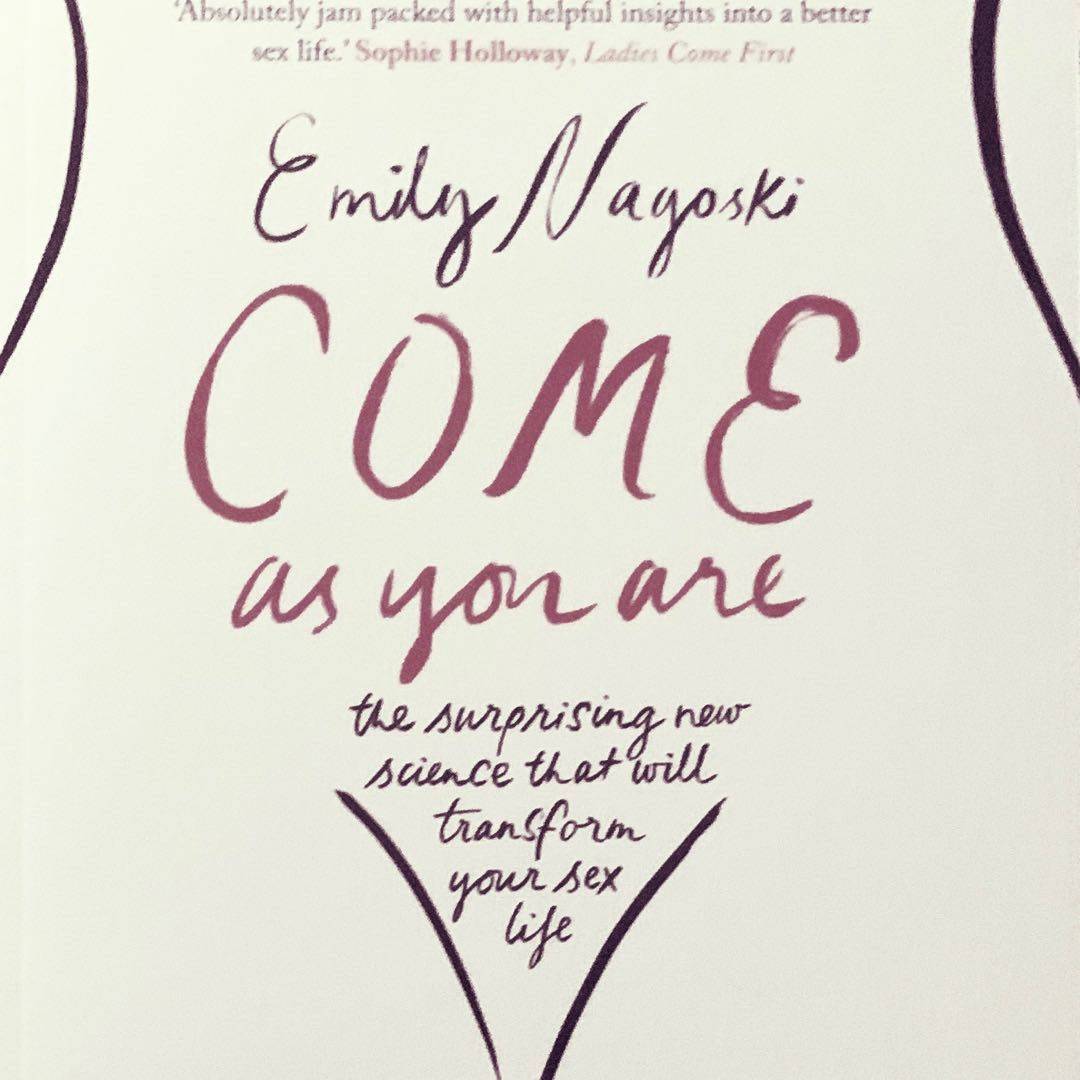 'Absolutely jam packed with helpful insights into a better
sex life.' Sophie Holloway, Ladies Come First
Emily Nagoski
COME
as you are
the surprising new
science that will
transform
your sex
life